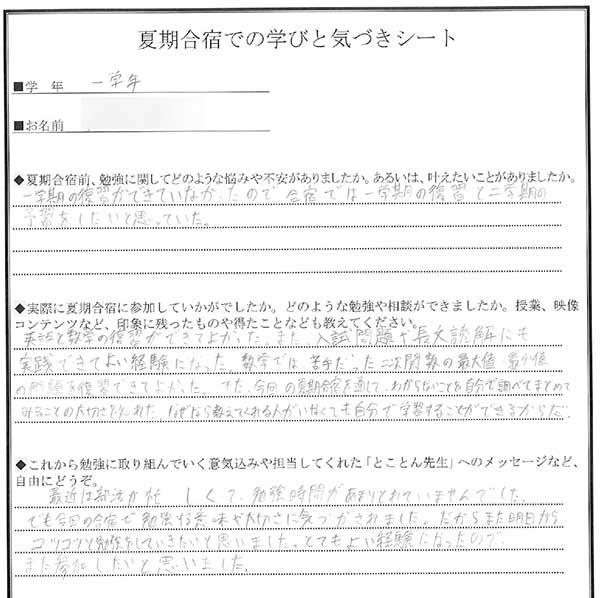 夏期合宿での学びと気づきシート
■学 年 一学年
■お名前
◆夏期合宿前、勉強に関してどのような悩みや不安がありましたか。あるいは、叶えたいことがありましたか。
一学期の復習ができていなかったので合宿では一学期の復習と二学期の
予習をしたいと思っていた。
◆実際に夏期合宿に参加していかがでしたか。どのような勉強や相談ができましたか。授業、映像
コンテンツなど、印象に残ったものや得たことなども教えてください。
英語と数学の復習ができてよかった。また、入試問題や長文読解にも
実践できてよい経験になった。数学では苦手だった二次関数の最大値 最小値
の問題を復習できてよかった。また、今回の夏期合宿を通して、わからないことを自分で調べてまとめて
みることの大切さを知れた。なぜなら教えてくれる人がいなくても自分で学習することができるからだ。
◆これから勉強に取り組んでいく意気込みや担当してくれた「とことん先生」へのメッセージなど、
自由にどうぞ。
最近は部活が忙しくて、勉強時間があまりとれていませんでした。
でも今回の合宿で勉強する意味や大切さに気づかされました。だからまた明日から
コツコツと勉強をしていきたいと思いました。とてもよい経験になったので
また参加したいと思いました。